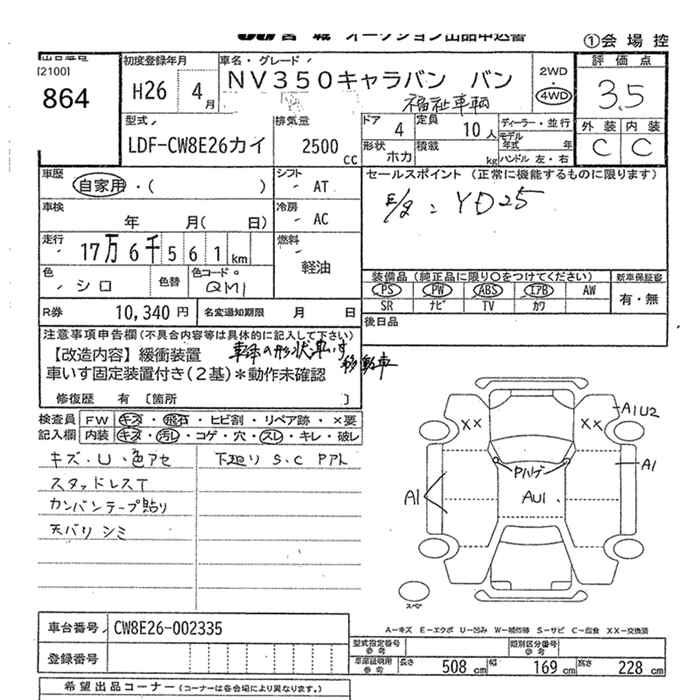 宮城 オークション出品申込書
①会場控
出品番号 初度登録年月 車名・グレード 評価点
[2100]
864 H26年 4月 NV350キャラバン バン 2WD ・ 4WD 3.5
福祉車輌
型式 排気量 ドア 4 定員 10人 ディーラー・並行 外装 内装
LDF-CW8E26カイ 2500cc モデル年式 年 C C
形状 ホカ 積載 kg ハンドル 左・右
車歴 シフト セールスポイント (正常に機能するものに限ります)
自家用・( ) AT
E/g : YD25
車検 冷房
年 月( 日) AC
走行 燃料
17万6千561km 軽油
色 色替 色コード 装備品 (純正品に限り〇をつけてください) 新車保証書
シロ QM1 PS PW ABS エアB AW 有・無
SR ナビ TV カワ
R券 10,340円 名変通知期限 月 日 後日品
注意事項申告欄(不具合内容等は具体的に記入して下さい)
【改造内容】緩衝装置 車体の形状 車いす移動車
車いす固定装置付き(2基)*動作未確認
修復歴 有 〔箇所 〕
検査員 FW キズ・飛石・ヒビ割・リペア跡・×要
記入欄 内装 キズ・汚レ・コゲ・穴・スレ・キレ・破レ
キズ・U・色アセ 下廻り S.C Pアト
スタッドレスT
カンバンテープ貼り
天バリ シミ
XX XX A1U2
A1
Pハゲ
A1 AU1
スペア
A-キズ E-エクボ U-凹み W-補修跡 S-サビ C-腐食 XX-交換済
車台番号 CW8E26-002335
型式指定番号 参考 類別区分番号 参考
登録番号
車庫証明用 参考 長さ 508cm 幅 169cm 高さ 228cm
希望出品コーナー (コーナーは各会場により異なります。)